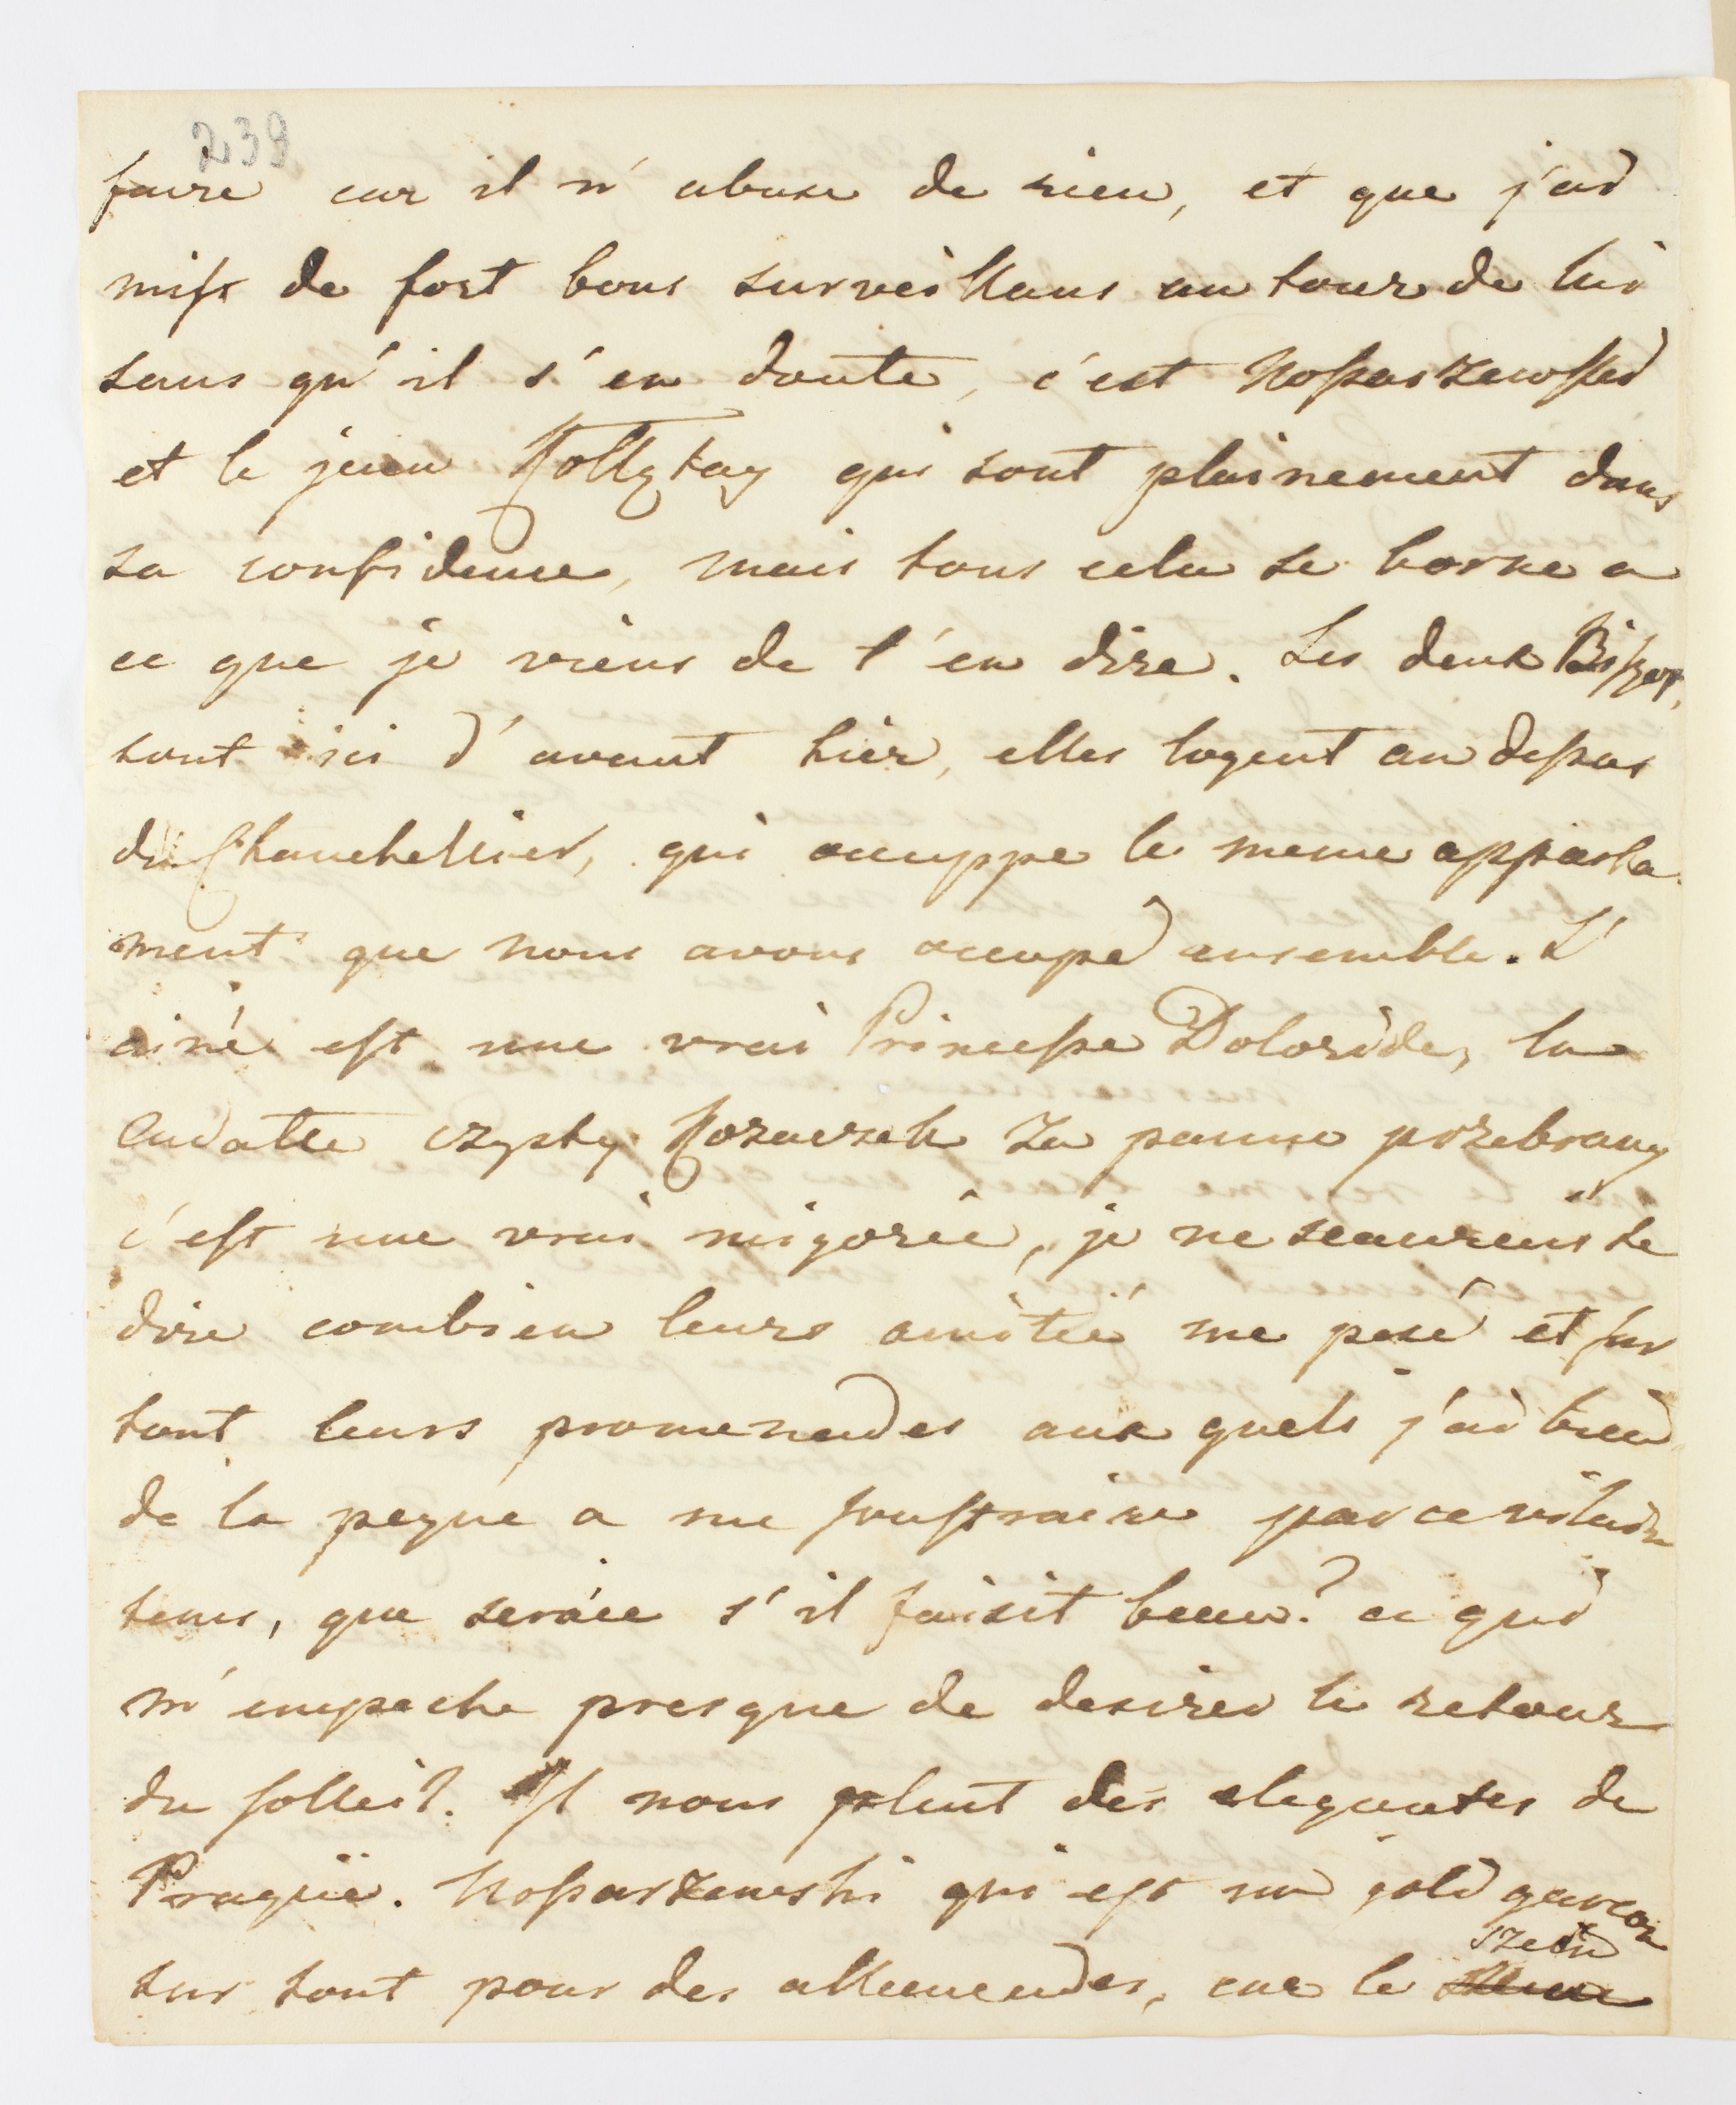 239
faire car il n'abuse de rien, et que j'ai
miss de fort bons surveillans au tour de lui
sans qu'il s'en doute, c'est Kossarzewski
et le jeun Kołłątay qui sont plainement dans
sa confidence, mais tous cela se borne a
ce que je viens de t'en dire. Les deux
sont ici d'avant hier, elles logent au dessus
du Chanchellier, qui occuppe le meme apparta-
ment que nous avons occupé ensemble. L'
ainé est une vrai Princesse Doloride, la
Cadatte czysty Kozaczek za panne przebrany
c'est une vrai mijorée, je ne scaurais te
dire combien leurs amitié me pese et sur
tout leurs promenades aux quels j'ai bien
de la peyne a me soustraire par ce vilain
tems, que seroice s'il faisit beau? ce qui
m'empeche presque de desirer le retour
du solleil. Il nous pleut des elegantes de
Pragüe. Kossarzewski qui est un joli garcon
sur tout pour des allemendes, car le